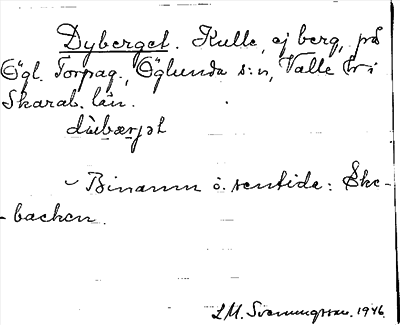 Dyberget. Kulle, ej berg, på
Ögl. Torpag., Öglunda s:n, Valle hd i
Skarab. län.
dùbærjət
Binamn o. sentida: Eke-
-backen.
L M. Svenungsson. 1946.